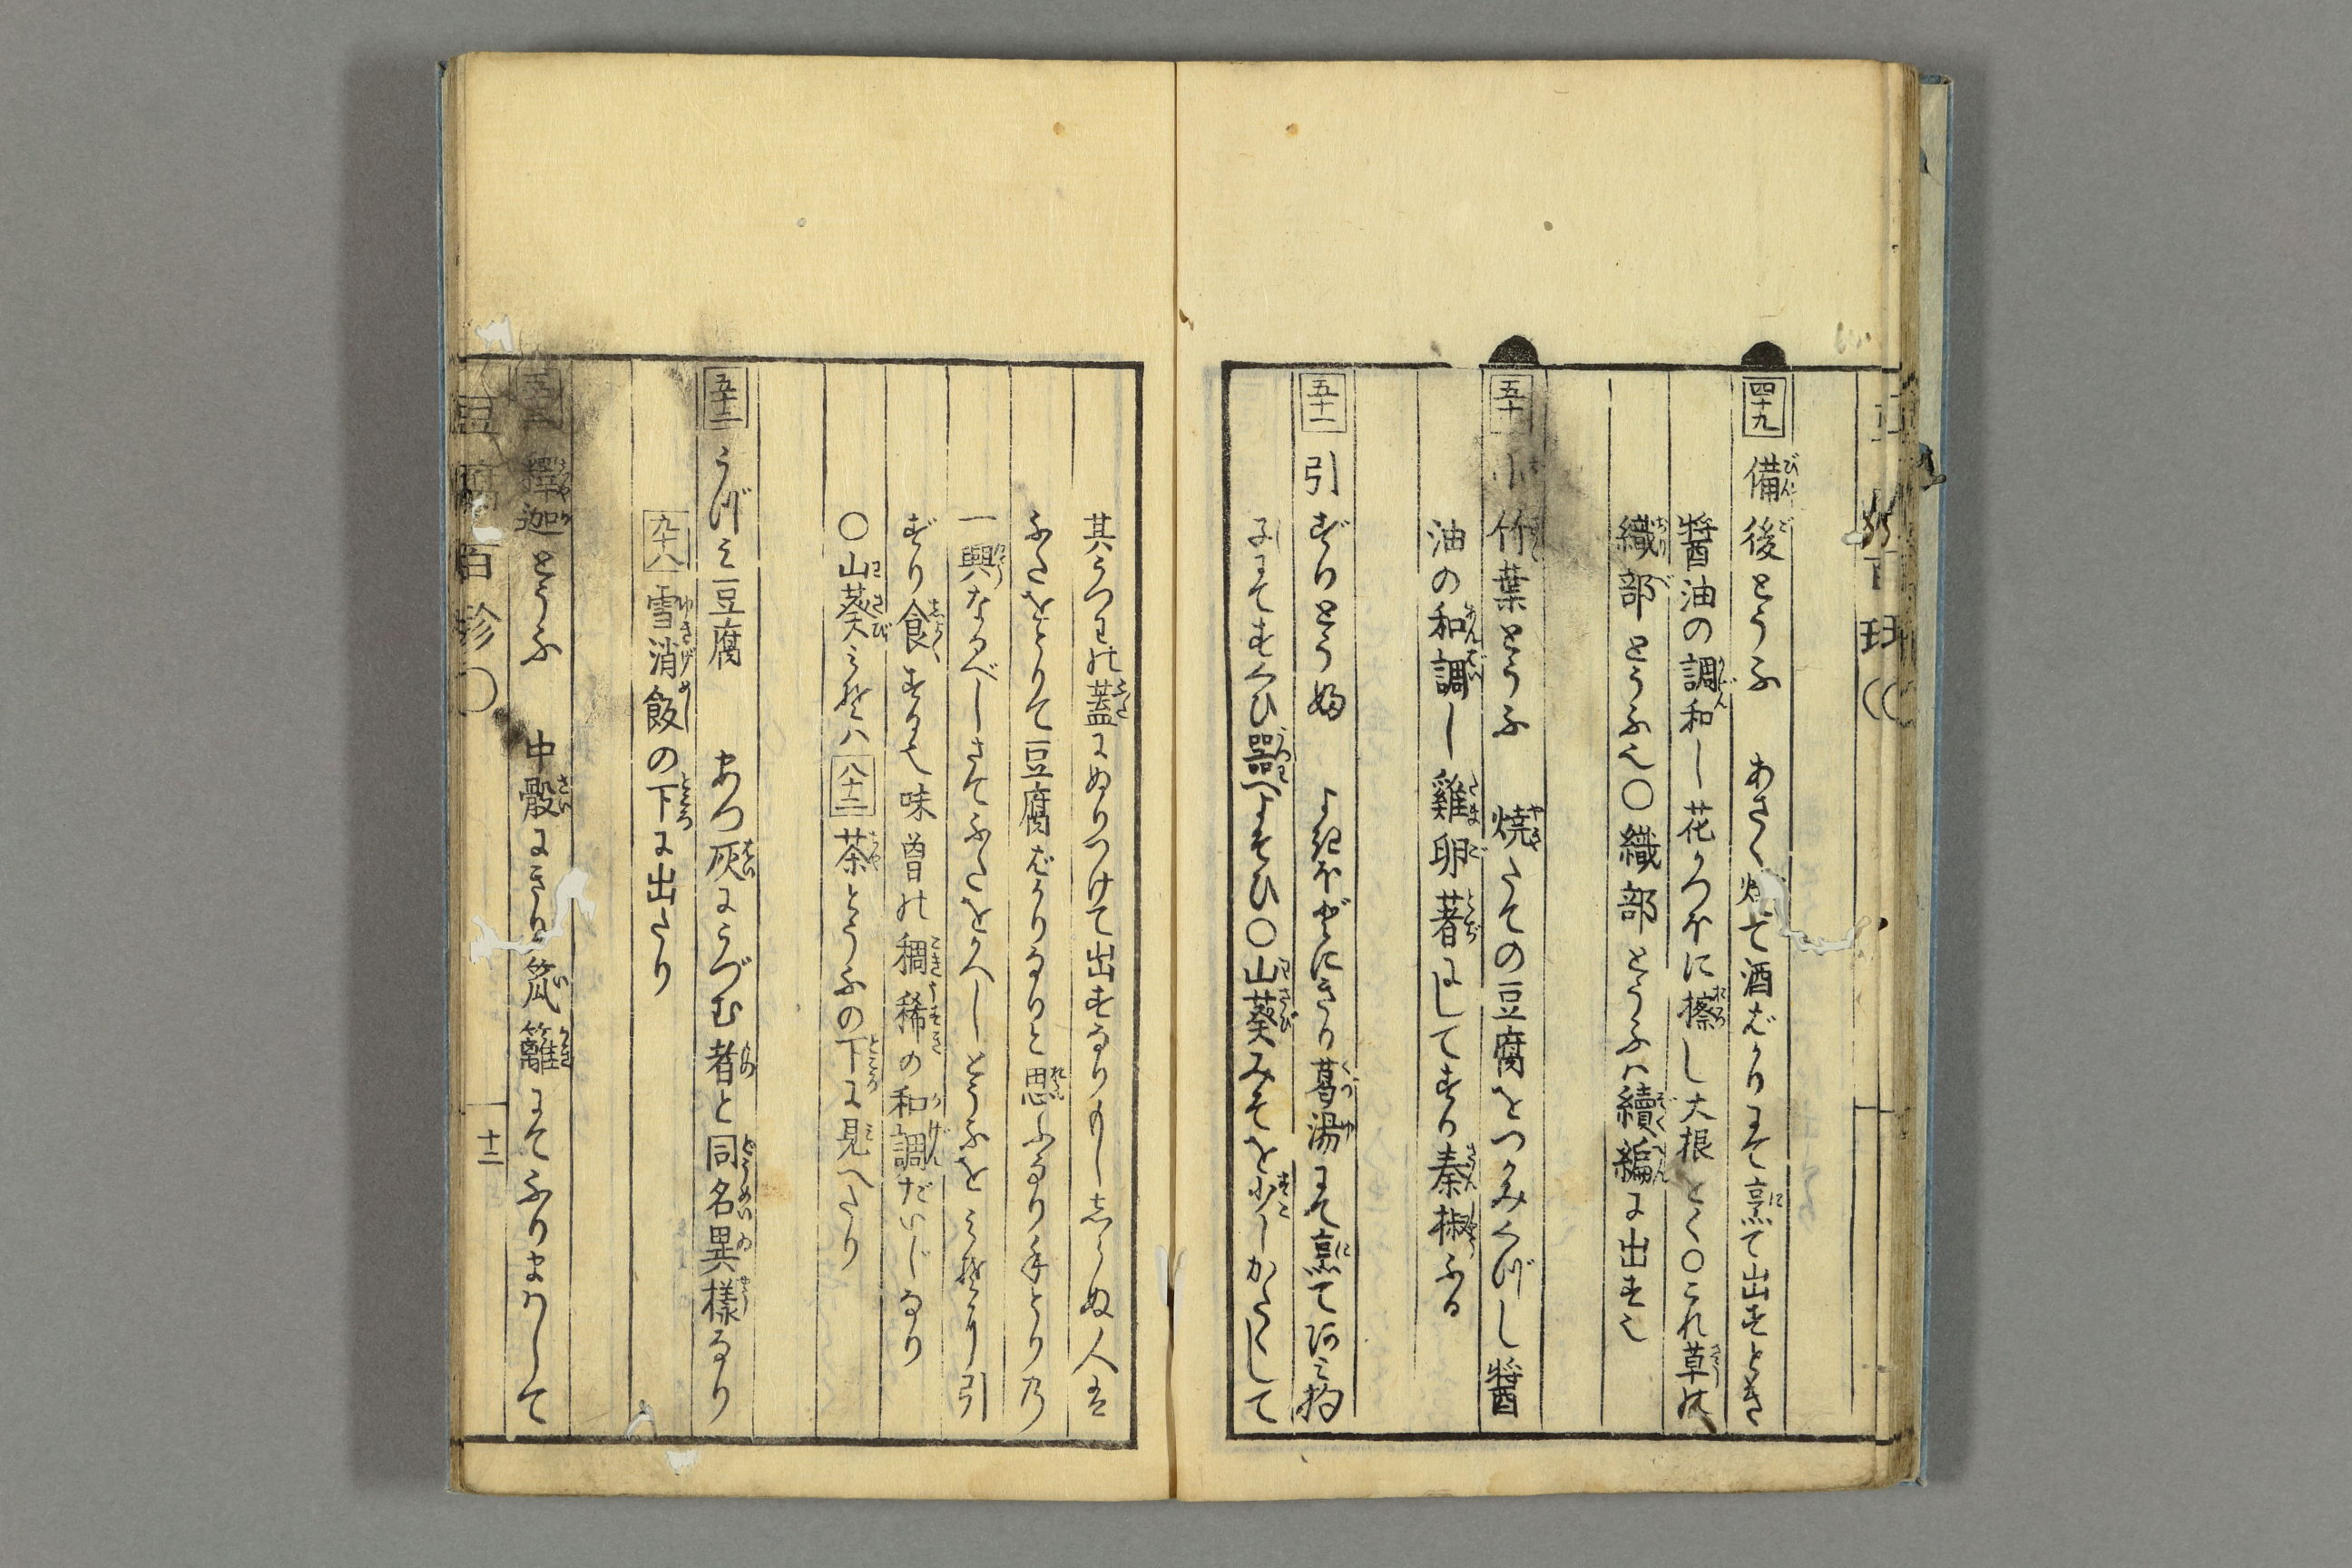 四十九 備後とうふ あさく焼て酒ばかりにて烹て出すとき
醤油の調和し花かつほに擦し大根 おく〇これ草の
織部とうふ也〇織部とうふハ續編に出す也
五十 小竹葉とうふ 焼たての豆腐をつかみくづし醤
油の和調し雞卵著にしてすり秦椒ふる
五十一 引ずりとうふ よきほどにきり葛湯にて烹て網杓
にてすくひ器へよそひ〇山葵みそを少しかたくして
其うつわの蓋にぬりつけて出すなりもししらぬ人は
ふたをとりて豆腐ばかりなりと思ふなり手とり乃
一興なるべしさてふたをかへしとうふをみそより引
ずり食する也味曽の稠稀の和調だいじなり
〇山葵みそハ八十二茶とうふの下に見へたり
五十二 うづみ豆腐 あつ灰にうづむ者と同名異様なり
九十八雪消飯の下に出たり
釋迦とうふ 中骰にきり笊籬にてふりまはして
豆腐百珍〇
十二